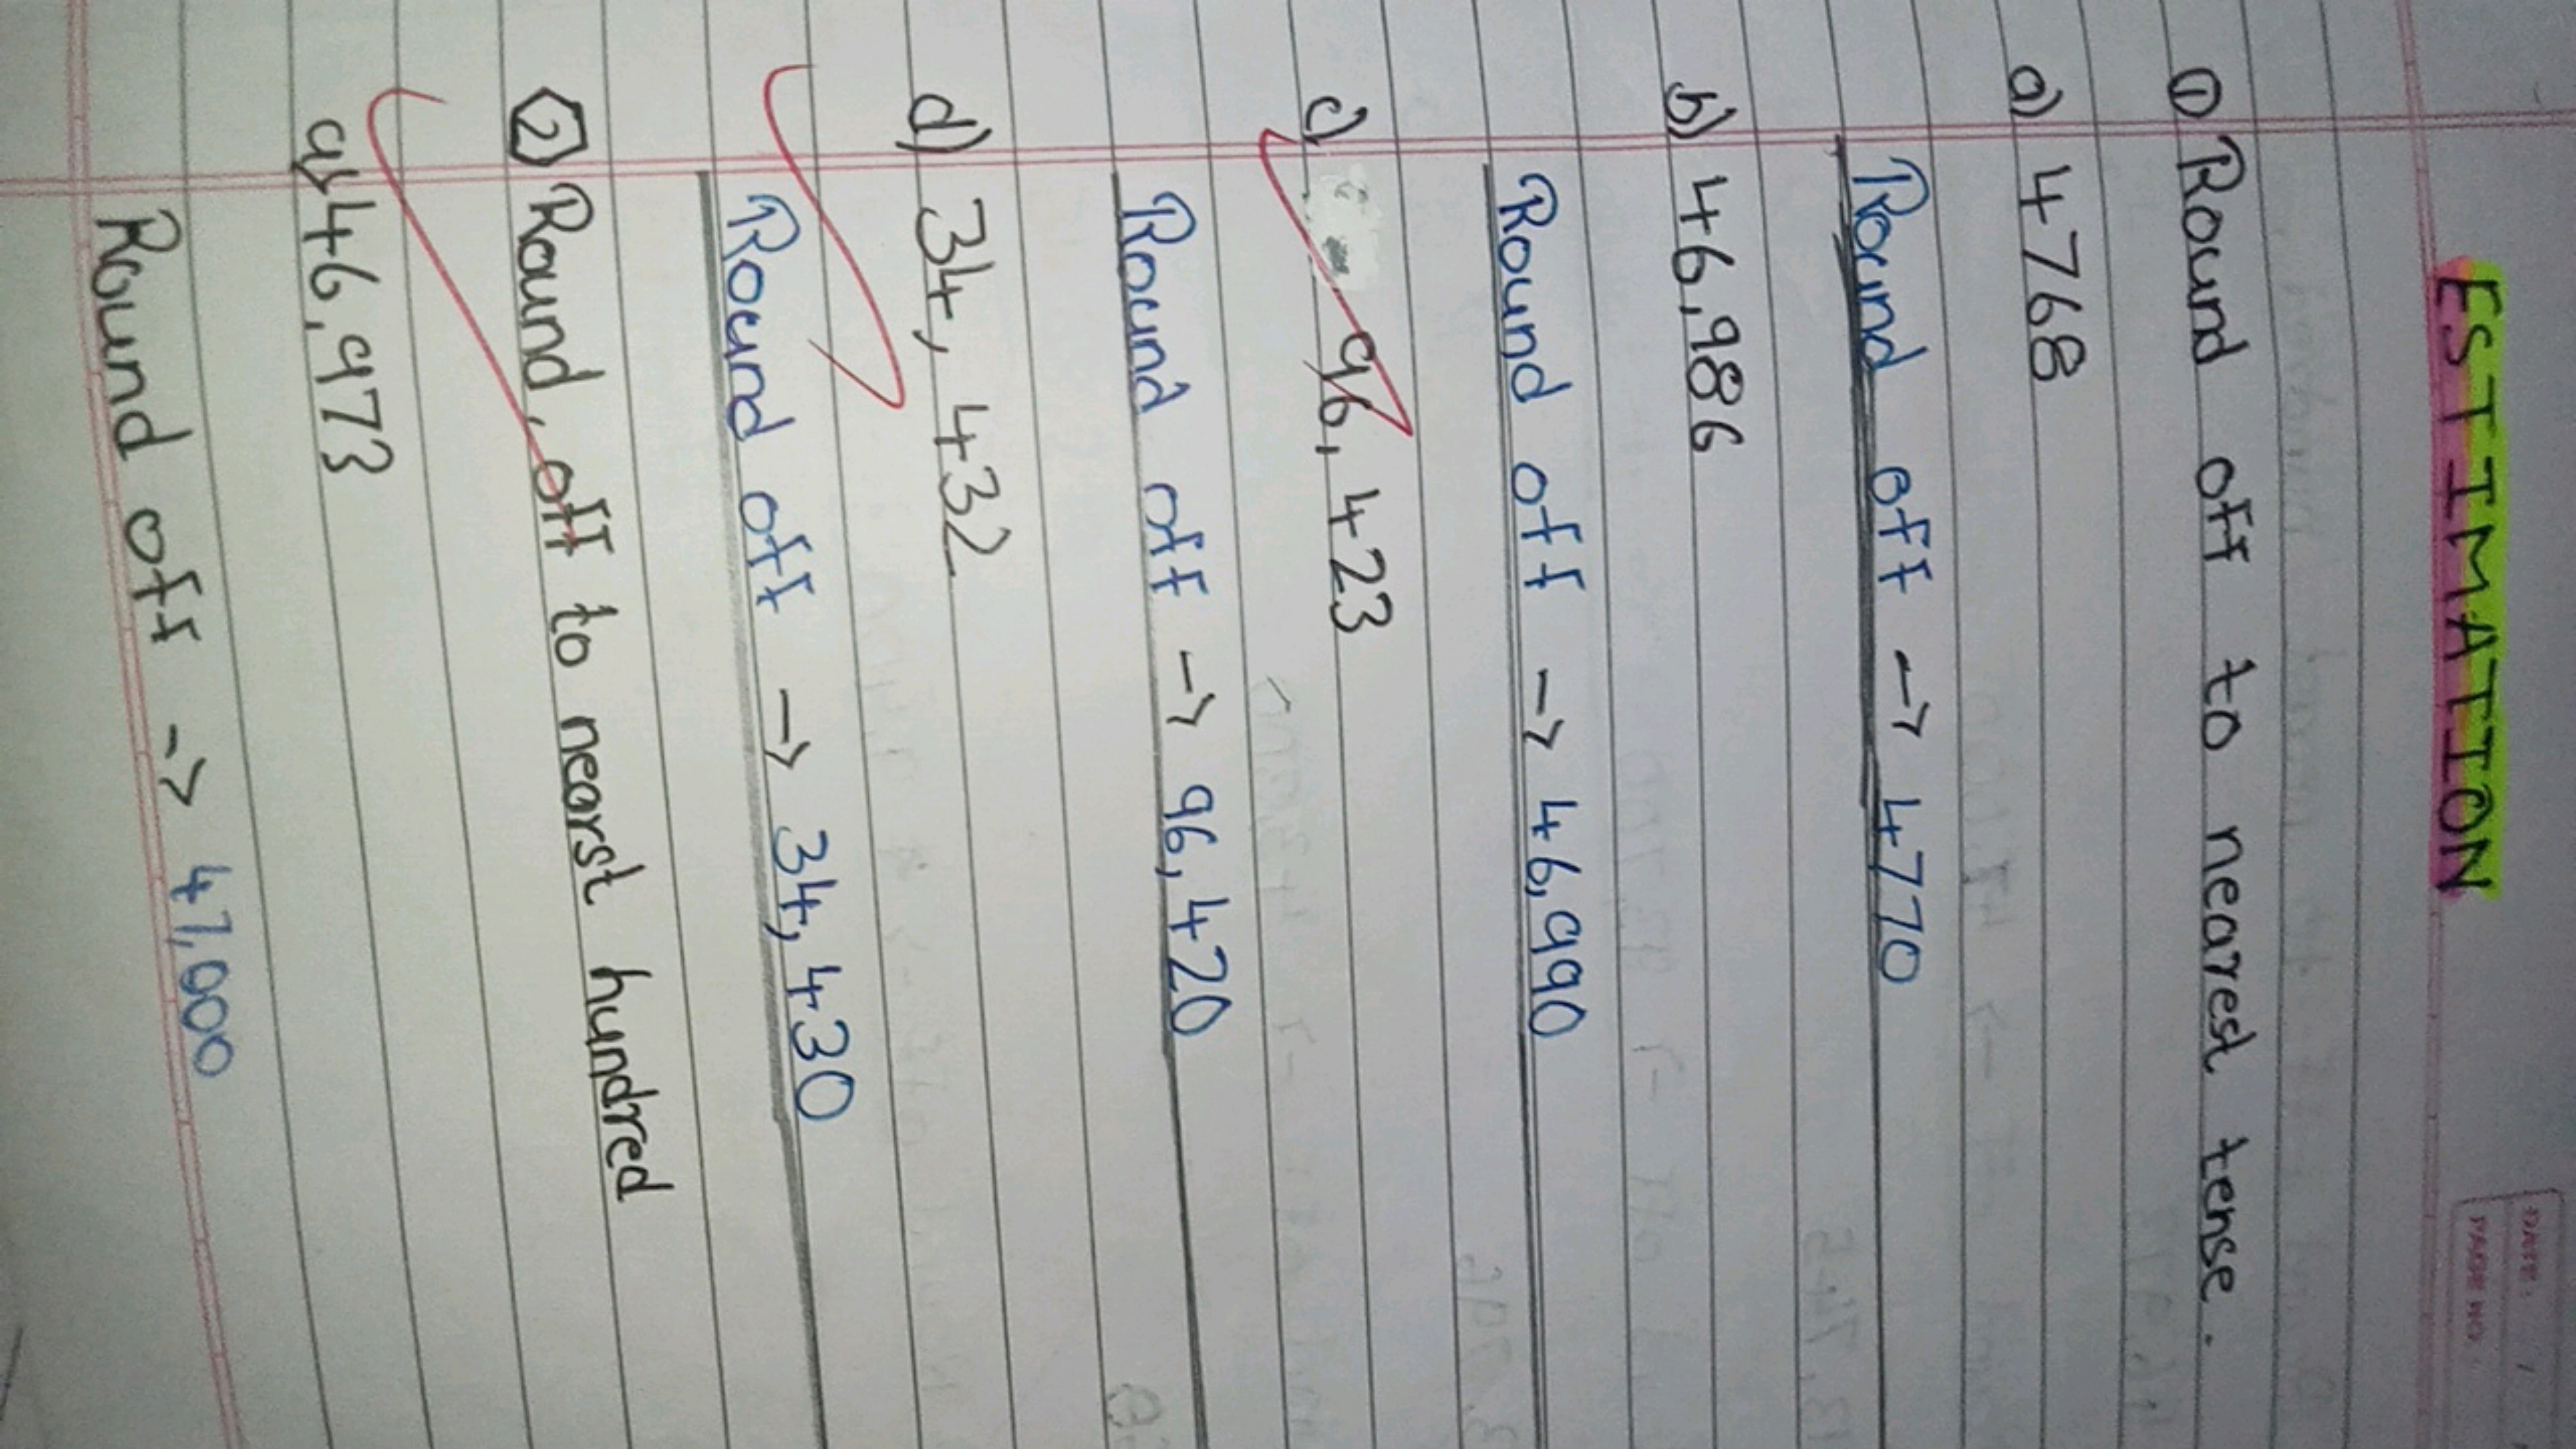 DATE: / /
PAGE NO.
ESTIMATION
① Round off to nearest tense.
a) 4768
Round off → 4770
b) 46,986
Round off → 46,990
c) 96,423
Round off → 96,420
d) 34,432
Round off → 34,430
② Round off to nearst hundred
a) 46,973
Round off → 47,000